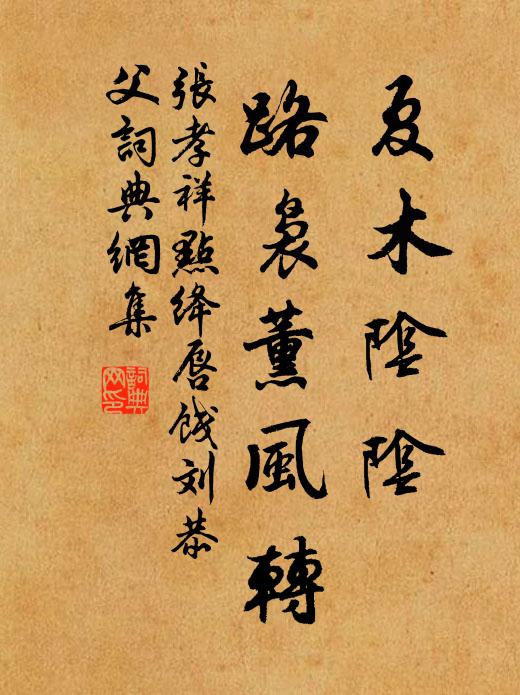 夏木陰陰
路裊薰風轉
張孝祥點絳唇餞刘恭
父詞典網集
詞典
网印